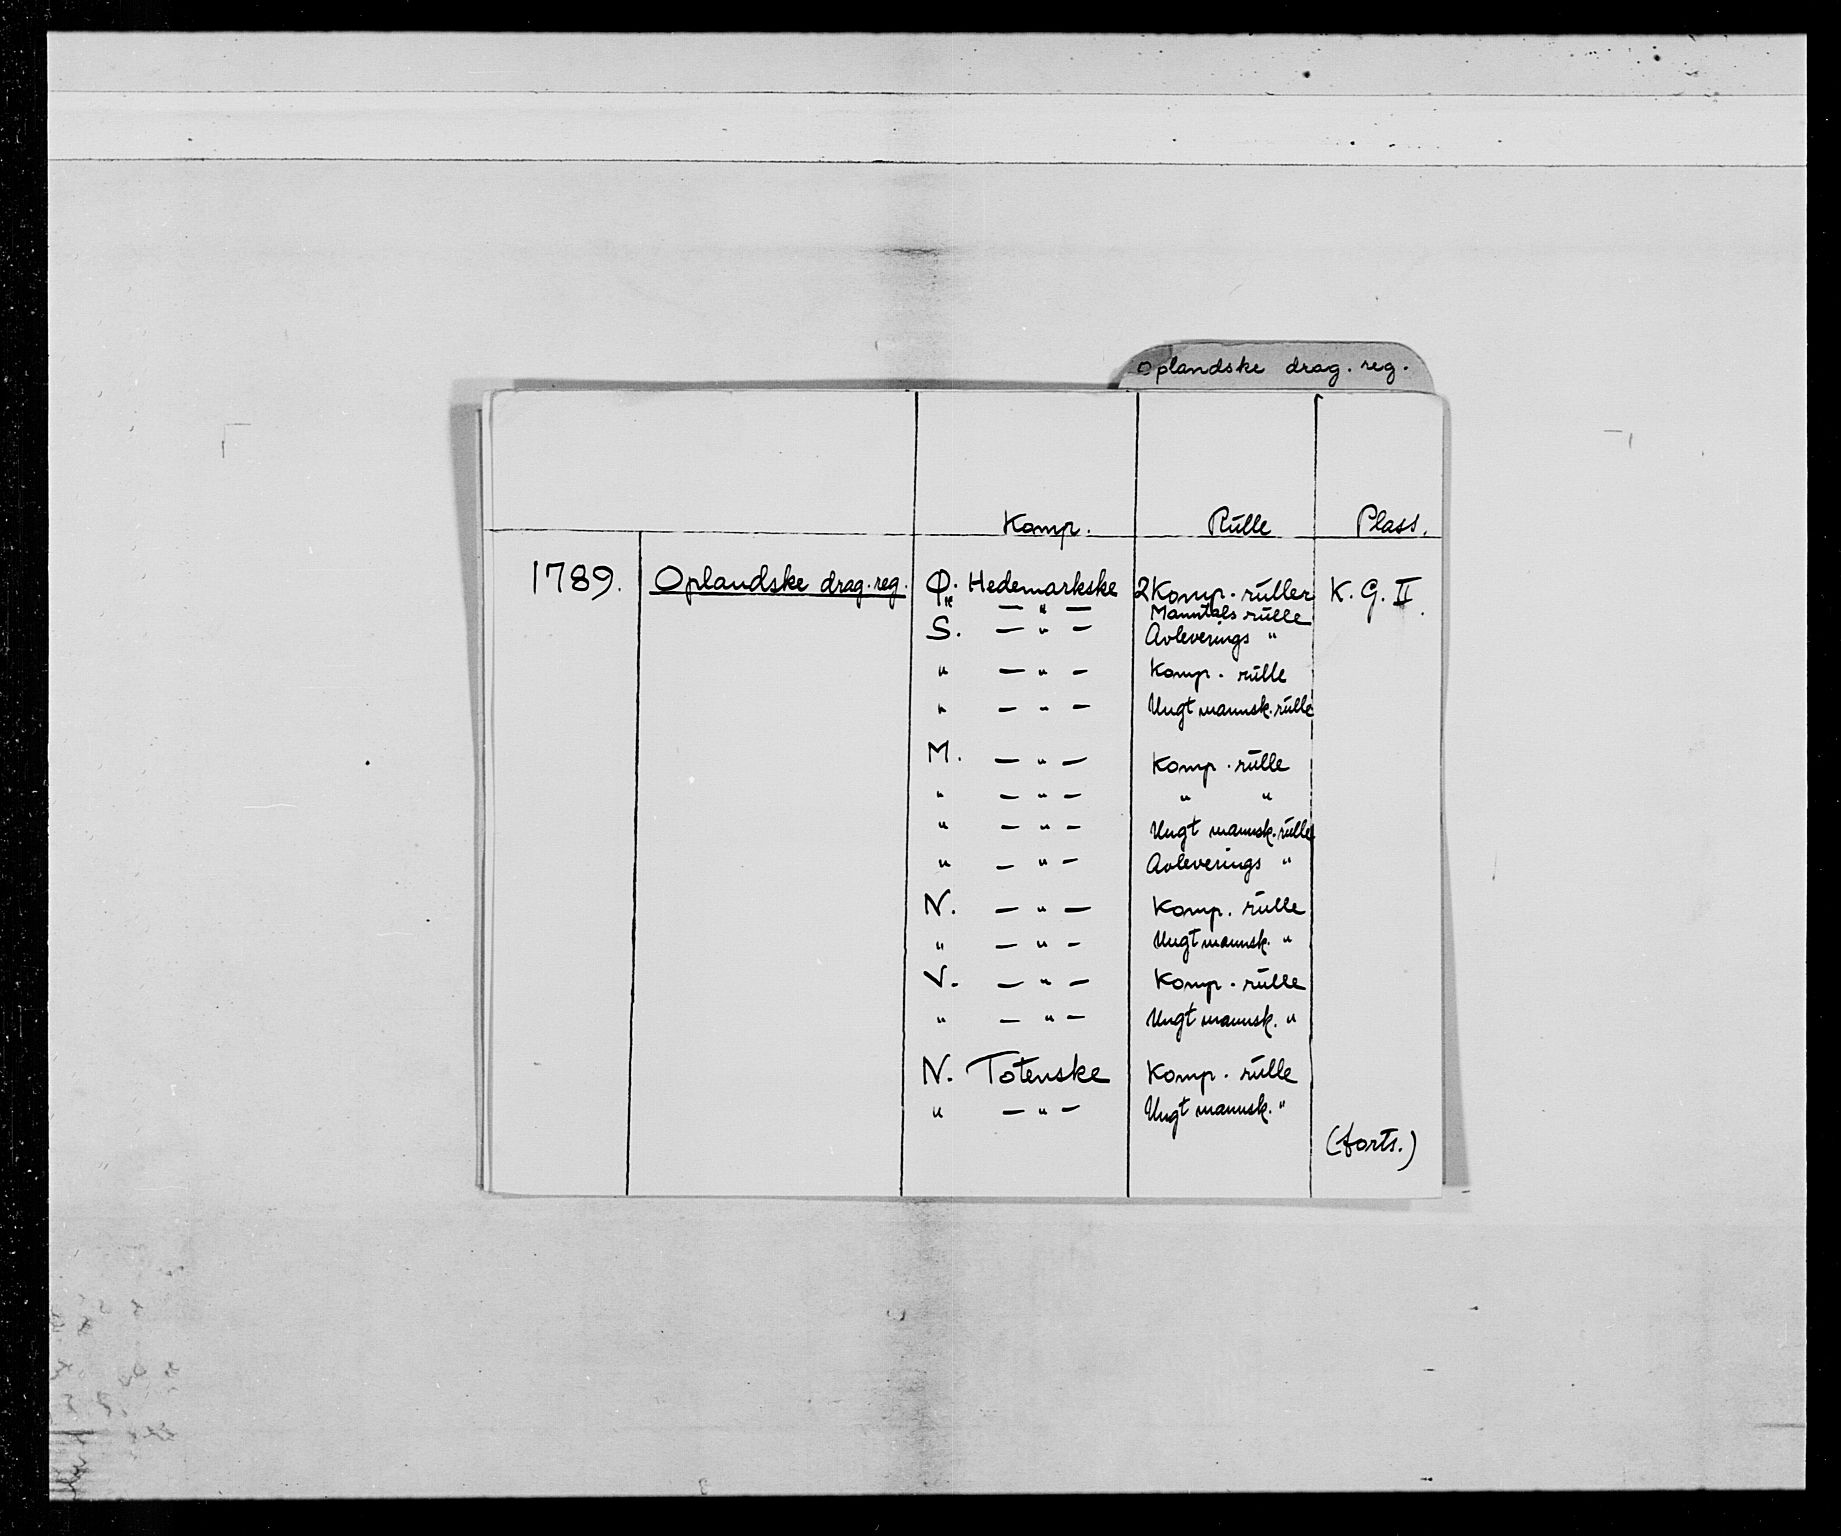 Oplandske drag. reg.
Komp. Rulle Plass.
1789. Oplandske drag. reg. Ø. Hedemarkske 2 Komp. ruller K. G. II.
" — " — Manntals rulle
S. — " — Avleverings "
" — " — Komp. rulle
" — " — Ungt mannsk. rulle
M. — " — Komp. rulle
" — " — " "
" — " — Ungt mannsk. rulle
" — " — Avleverings "
N. — " — Komp. rulle
" — " — Ungt mannsk. "
V. — " — Komp. rulle
" — " — Ungt mannsk. "
N. Totenske Komp. rulle
" — " — Ungt mannsk. "
(forts.)